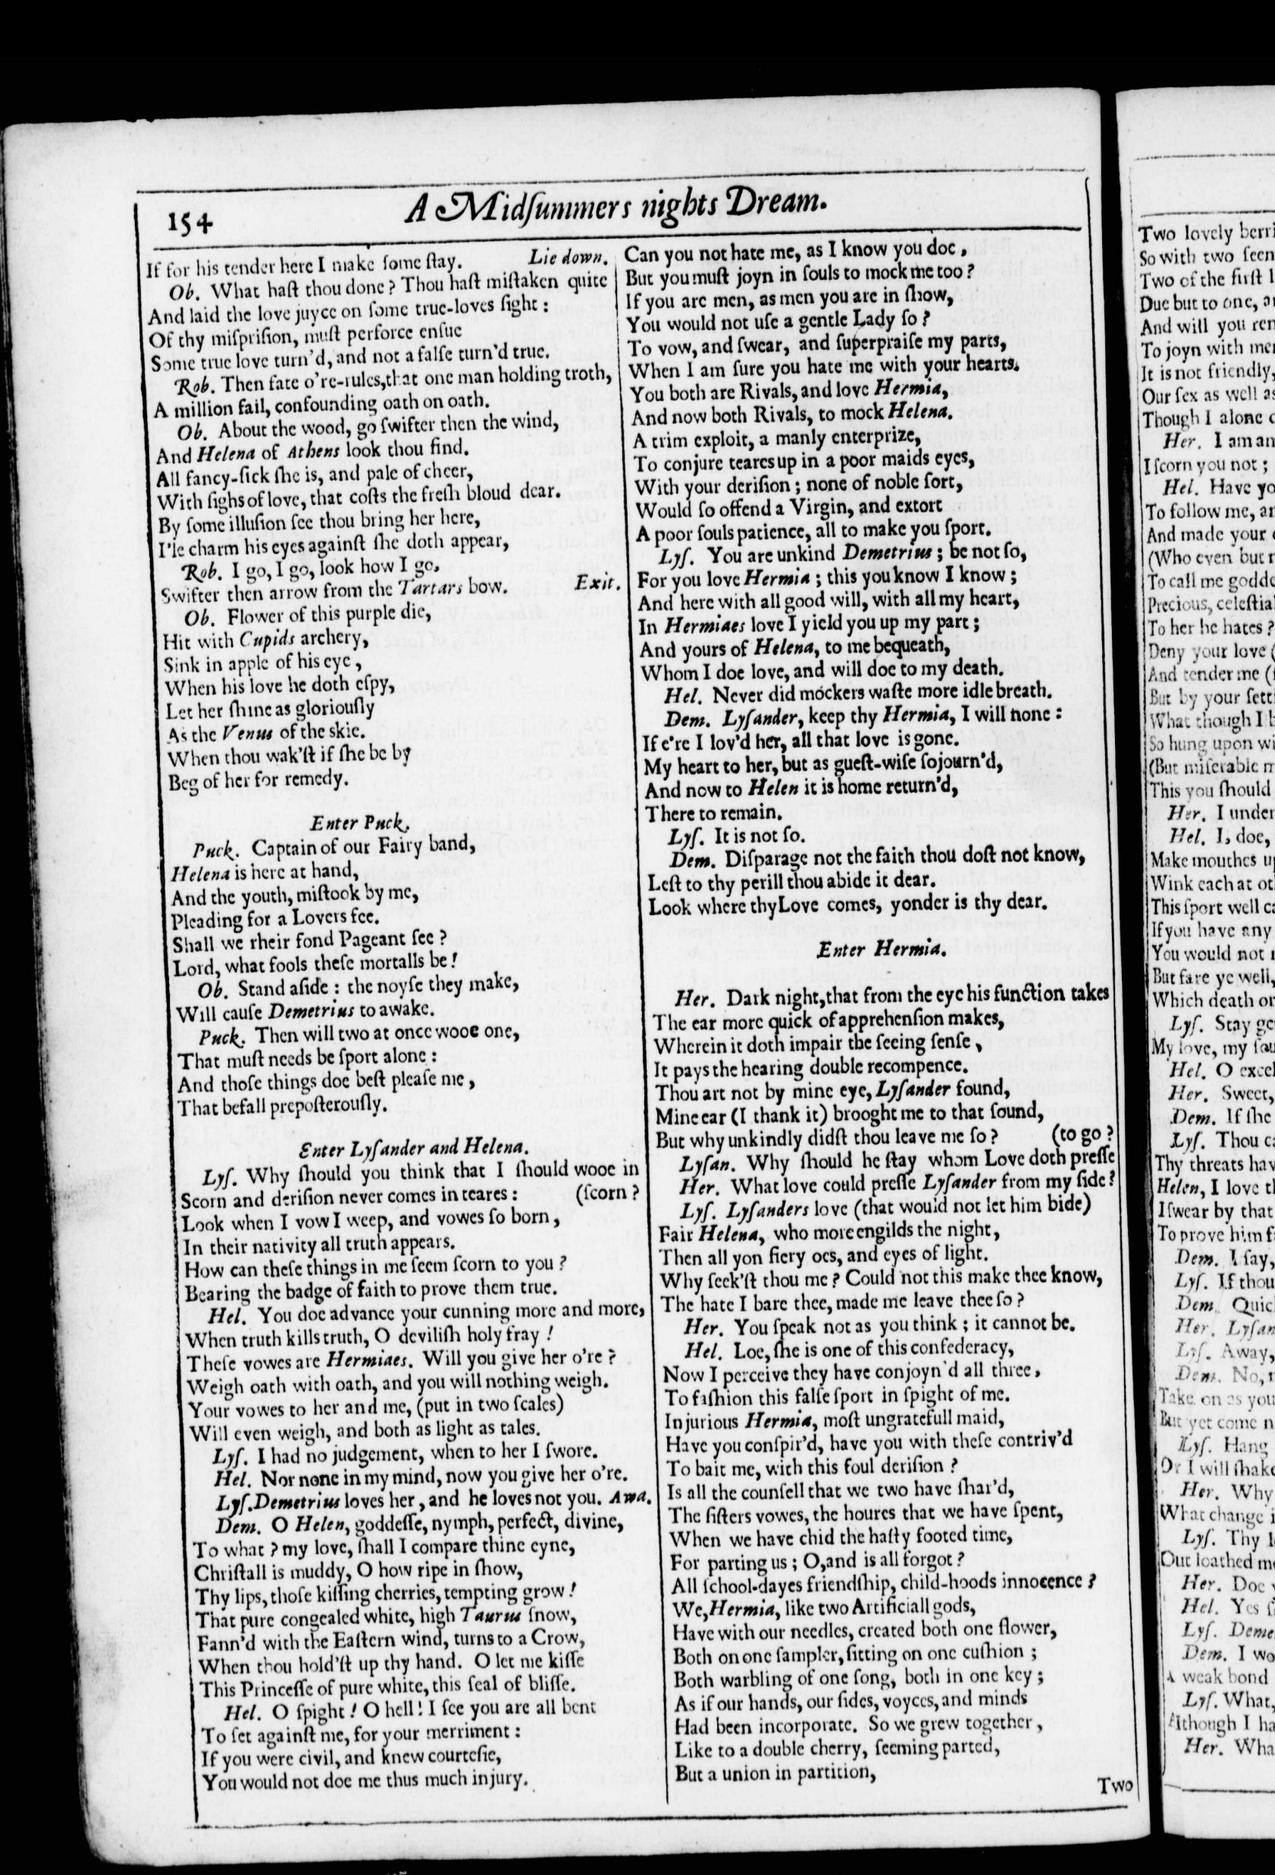 154
A Midſummers nights Dream.
If for his tender here I make ſome ſtay. Lie down.
Ob. What haſt thou done? Thou haſt miſtaken quite
And laid the love juyce on ſome true-loves ſight:
Of thy miſpriſion, muſt perforce enſue
Some true love turn'd, and not a falſe turn'd true.
Rob. Then fate o're-rules, that one man holding troth,
A million fail, confounding oath on oath.
Ob. About the wood, go ſwifter then the wind,
And Helena of Athens look thou find.
All fancy-ſick ſhe is, and pale of cheer,
With ſighs of love, that coſts the freſh bloud dear.
By ſome illuſion ſee thou bring her here,
I'le charm his eyes againſt ſhe doth appear,
Rob. I go, I go, look how I go,
Swifter then arrow from the Tartars bow. Exit.
Ob. Flower of this purple die,
Hit with Cupids archery,
Sink in apple of his eye,
When his love he doth eſpy,
Let her ſhine as gloriouſly
As the Venus of the skie.
When thou wak'ſt if ſhe be by
Beg of her for remedy.
Enter Puck.
Puck. Captain of our Fairy band,
Helena is here at hand,
And the youth, miſtook by me,
Pleading for a Lovers fee.
Shall we rheir fond Pageant ſee?
Lord, what fools theſe mortalls be!
Ob. Stand aſide: the noyſe they make,
Will cauſe Demetrius to awake.
Puck. Then will two at once wooe one,
That muſt needs be ſport alone:
And thoſe things doe beſt pleaſe me,
That befall prepoſterouſly.
Enter Lyſander and Helena.
Lyſ. Why ſhould you think that I ſhould wooe in
Scorn and deriſion never comes in teares: (ſcorn?
Look when I vow I weep, and vowes ſo born,
In their nativity all truth appears.
How can theſe things in me ſeem ſcorn to you?
Bearing the badge of faith to prove them true.
Hel. You doe advance your cunning more and more,
When truth kills truth, O deviliſh holy fray!
Theſe vowes are Hermiaes. Will you give her o're?
Weigh oath with oath, and you will nothing weigh.
Your vowes to her and me, (put in two ſcales)
Will even weigh, and both as light as tales.
Lyſ. I had no judgement, when to her I ſwore.
Hel. Nor none in my mind, now you give her o're.
Lyſ. Demetrius loves her, and he loves not you. Awa.
Dem. O Helen, goddeſſe, nymph, perfect, divine,
To what? my love, ſhall I compare thine eyne,
Chriſtall is muddy, O how ripe in ſhow,
Thy lips, thoſe kiſſing cherries, tempting grow!
That pure congealed white, high Taurus ſnow,
Fann'd with the Eaſtern wind, turns to a Crow,
When thou hold'ſt up thy hand. O let me kiſſe
This Princeſſe of pure white, this ſeal of bliſſe.
Hel. O ſpight! O hell! I ſee you are all bent
To ſet againſt me, for your merriment:
If you were civil, and knew courteſie,
You would not doe me thus much injury.
Can you not hate me, as I know you doe,
But you muſt joyn in ſouls to mock me too?
If you are men, as men you are in ſhow,
You would not uſe a gentle Lady ſo?
To vow, and ſwear, and ſuperpraiſe my parts,
When I am ſure you hate me with your hearts.
You both are Rivals, and love Hermia,
And now both Rivals, to mock Helena.
A trim exploit, a manly enterprize,
To conjure teares up in a poor maids eyes,
With your deriſion; none of noble ſort,
Would ſo offend a Virgin, and extort
A poor ſouls patience, all to make you ſport.
Lyſ. You are unkind Demetrius; be not ſo,
For you love Hermia; this you know I know;
And here with all good will, with all my heart,
In Hermiaes love I yield you up my part;
And yours of Helena, to me bequeath,
Whom I doe love, and will doe to my death.
Hel. Never did mockers waſte more idle breath.
Dem. Lyſander, keep thy Hermia, I will none:
If e're I lov'd her, all that love is gone.
My heart to her, but as gueſt-wiſe ſojourn'd,
And now to Helen it is home return'd,
There to remain.
Lyſ. It is not ſo.
Dem. Diſparage not the faith thou doſt not know,
Leſt to thy perill thou abide it dear.
Look where thy Love comes, yonder is thy dear.
Enter Hermia.
Her. Dark night, that from the eye his function takes
The ear more quick of apprehenſion makes,
Wherein it doth impair the ſeeing ſenſe,
It pays the hearing double recompence.
Thou art not by mine eye, Lyſander found,
Mine ear (I thank it) brooght me to that ſound,
But why unkindly didſt thou leave me ſo? (to go?
Lyſan. Why ſhould he ſtay whom Love doth preſſe
Her. What love could preſſe Lyſander from my ſide?
Lyſ. Lyſanders love (that would not let him bide)
Fair Helena, who more engilds the night,
Then all yon fiery oes, and eyes of light.
Why ſeek'ſt thou me? Could not this make thee know,
The hate I bare thee, made me leave thee ſo?
Her. You ſpeak not as you think; it cannot be.
Hel. Loe, ſhe is one of this confederacy,
Now I perceive they have conjoyn'd all three,
To faſhion this falſe ſport in ſpight of me.
Injurious Hermia, moſt ungratefull maid,
Have you conſpir'd, have you with theſe contriv'd
To bait me, with this foul deriſion?
Is all the counſell that we two have ſhar'd,
The ſiſters vowes, the houres that we have ſpent,
When we have chid the haſty footed time,
For parting us; O, and is all forgot?
All ſchool-dayes friendſhip, child-hoods innocence?
We, Hermia, like two Artificiall gods,
Have with our needles, created both one flower,
Both on one ſampler, ſitting on one cuſhion;
Both warbling of one ſong, both in one key;
As if our hands, our ſides, voyces, and minds
Had been incorporate. So we grew together,
Like to a double cherry, ſeeming parted,
But a union in partition,
Two
Two lovely
So with two
Two of the firſt
Due but to one,
And will you
To joyn with
It is not friendly,
Our ſex as well
Though I alone
Her. I am
I ſcorn you not;
Hel. Have
To follow me,
And made your
(Who even but
To call me
Precious,
To her he hates?
Deny your love
And tender me
But by your
What though I
So hung upon
(But miſerable
This you ſhould
Her. I
Hel. I, doe,
Make mouthes
Wink each at
This ſport well
If you have any
You would not
But fare ye well,
Which death
Lyſ. Stay
My love, my
Hel. O
Her. Sweet,
Dem. If ſhe
Lyſ. Thou
Thy threats
Helen, I love
I ſwear by that
To prove him
Dem. I ſay,
Lyſ. If thou
Dem.
Her.
Lyſ. Away,
Dem. No,
Take on as you
But yet come
Lyſ. Hang
Or I will
Her. Why
What change
Lyſ. Thy
Out loathed
Her. Doe
Hel. Yes
Lyſ.
Dem. I
A weak bond
Lyſ. What,
Although I
Her.